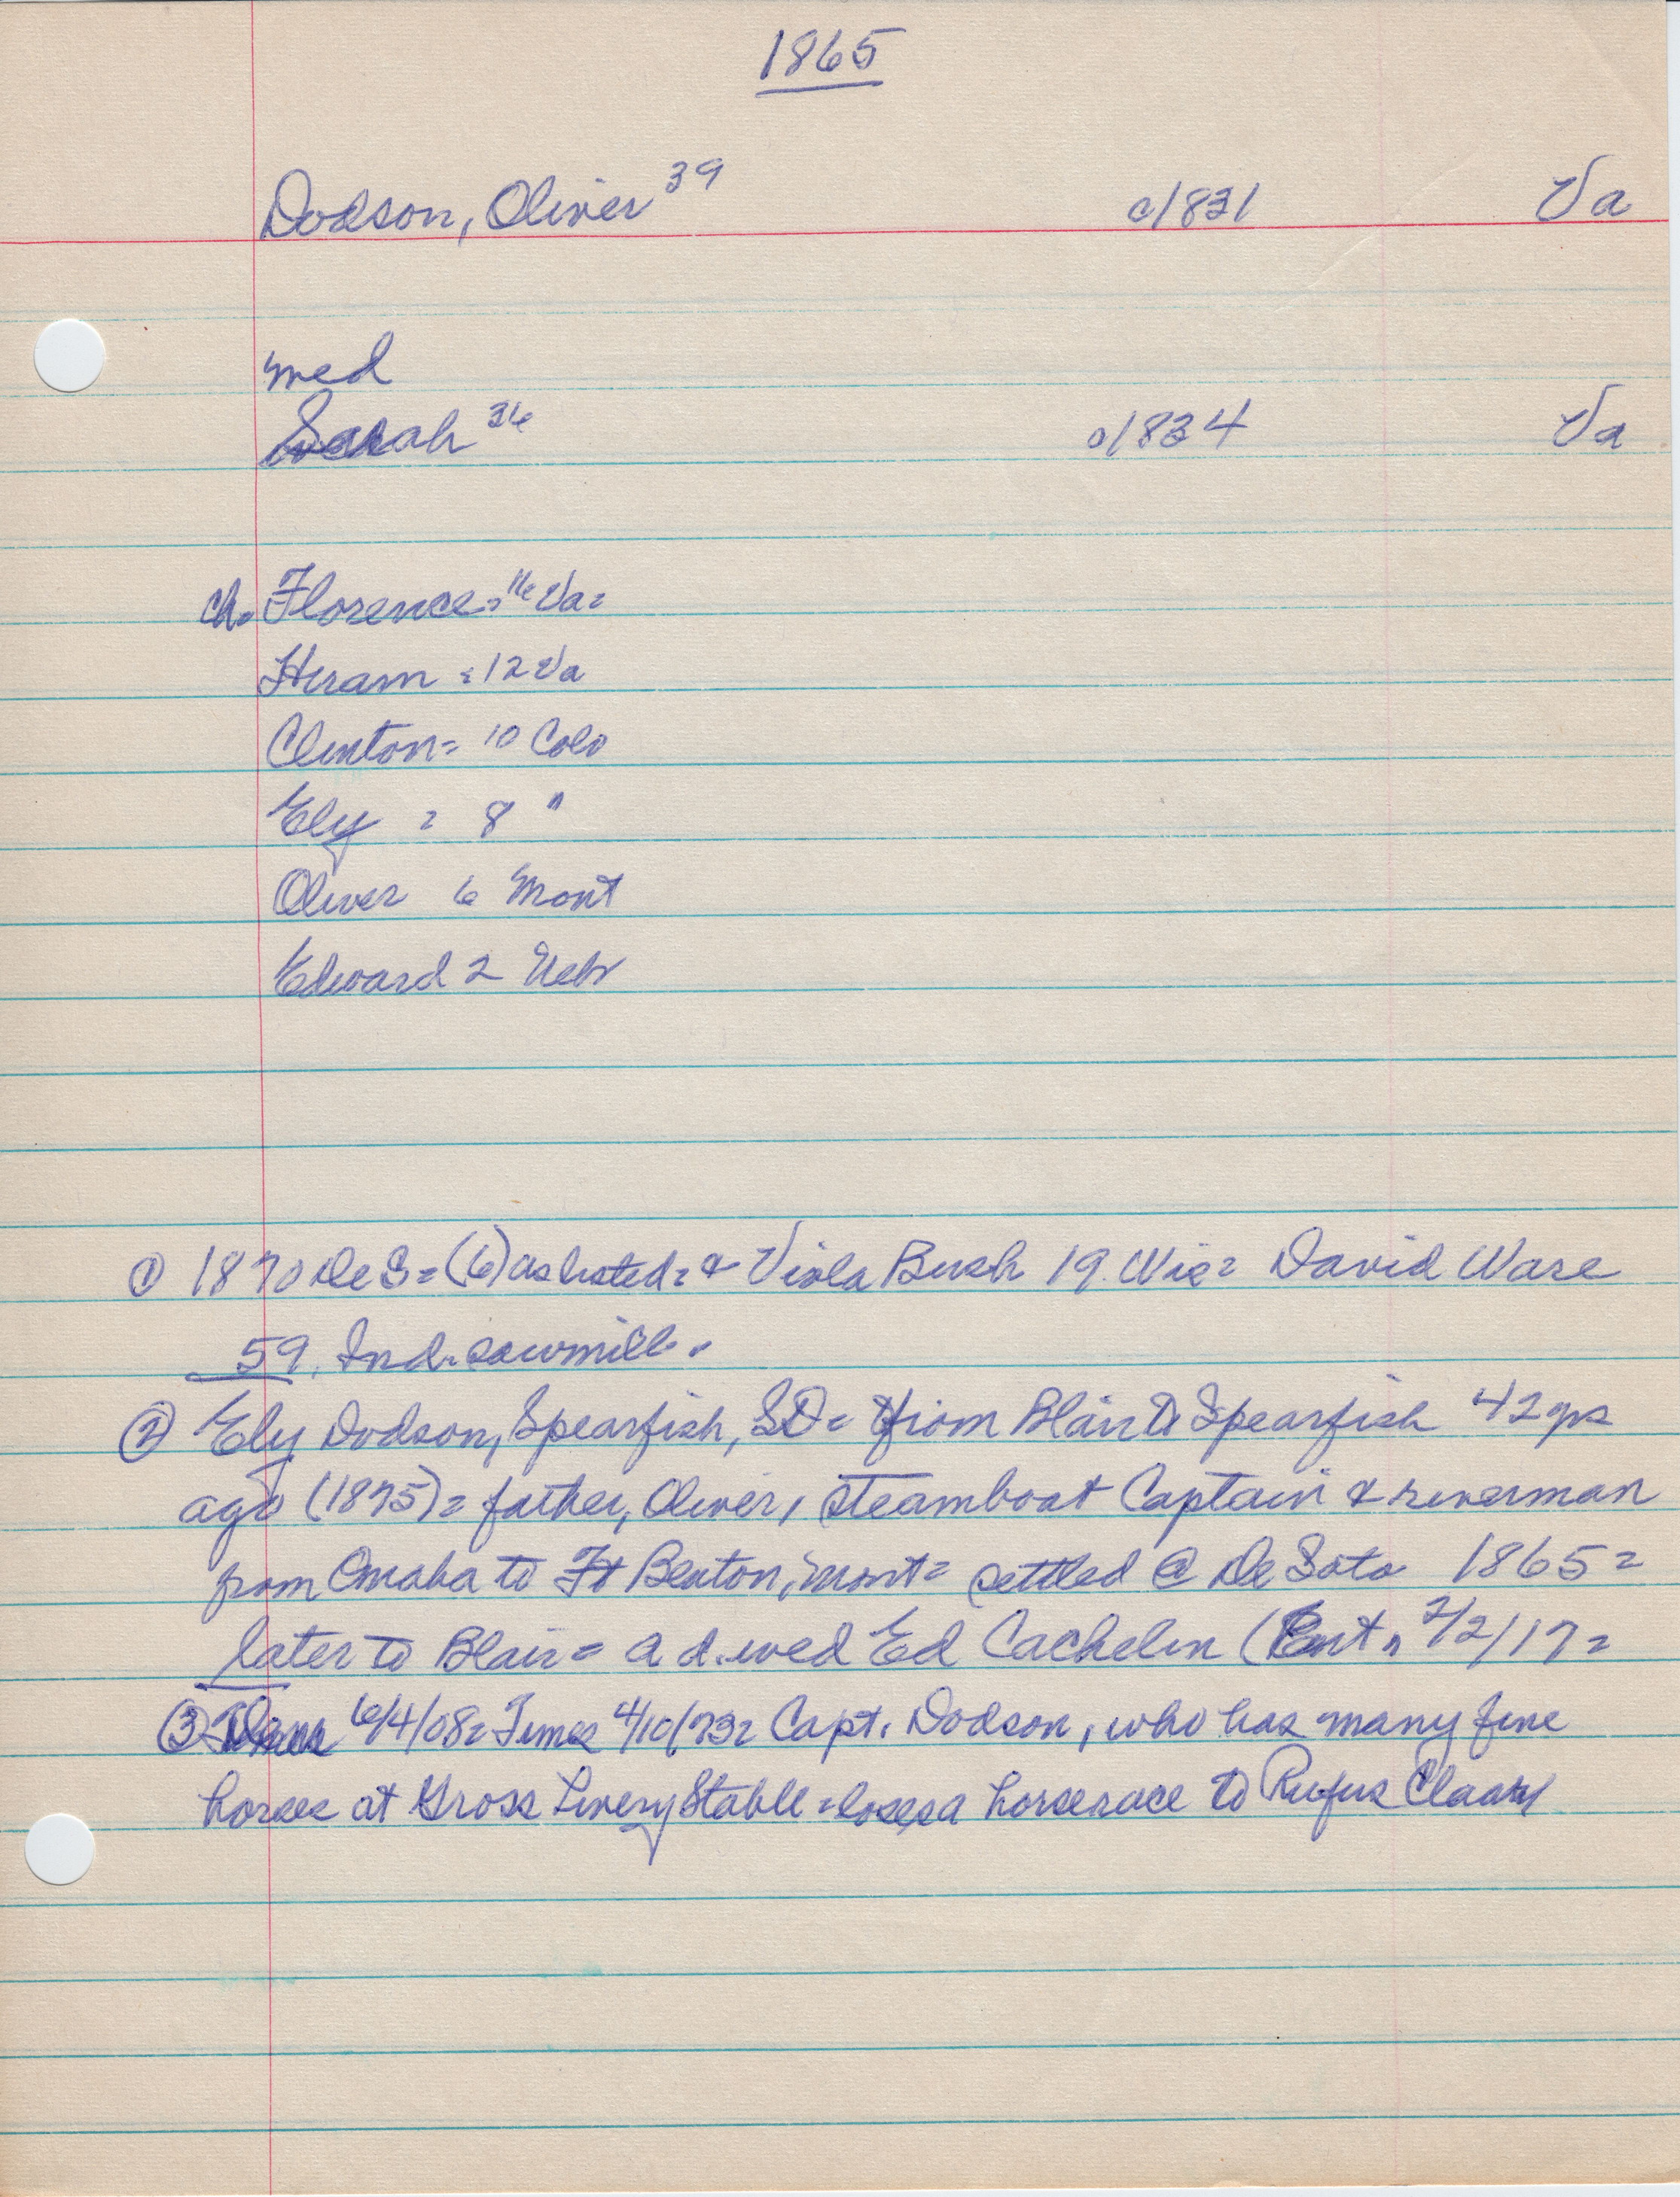 1865
Dodson, Oliver 39 c/831 Va
med
Sarah 36 c/834 Va
ch. Florence = 16 Va =
Hiram = 12 Va
Clinton = 10 Colo
Ely = 8 "
Oliver 6 Mont
Edward 2 Nebr
① 1870 De S = (6) as listed = & Viola Bush 19. Wis = David Ware
59. Ind. sawmill.
② Ely Dodson, Spearfish, SD = from Blair to Spearfish 42 yrs
ago (1875) = father, Oliver, steamboat Captain & riverman
from Omaha to Ft Benton, Mont = settled @ De Soto 1865 =
later to Blair = a d. wed Ed Cachelin (Ent. 2/2/17 =
③ 6/4/08 = Times 4/10/73 = Capt. Dodson, who has many fine
horses at Gross Livery Stable = loses a horserace to Rufus